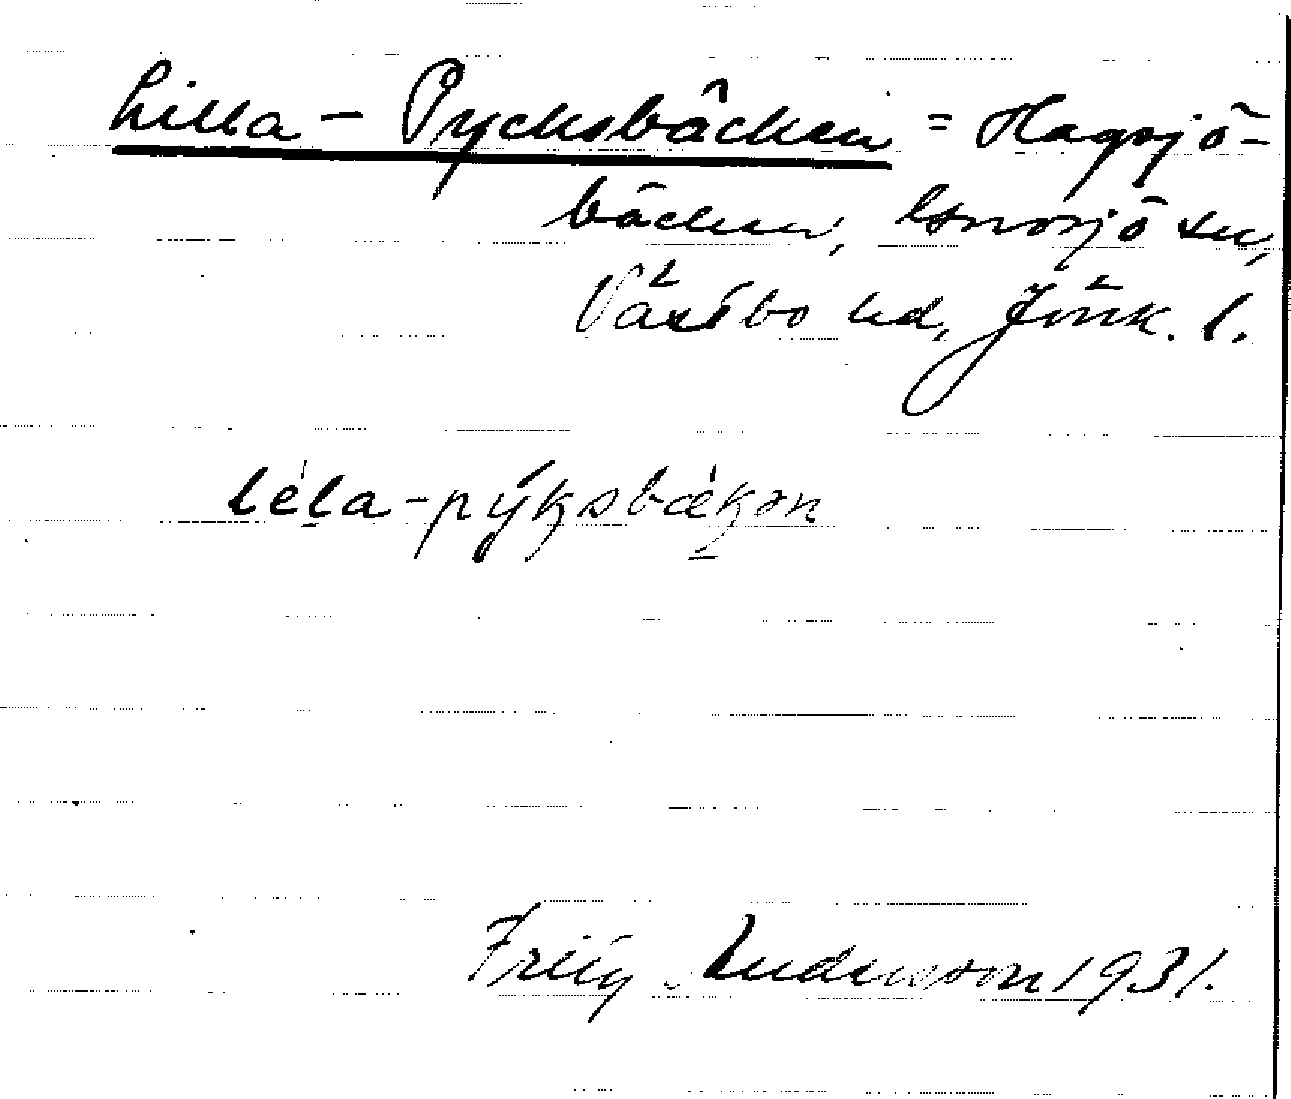 Lilla-Pycksbäcken = Hagsjö-
bäcken, Gnosjö sn,
Västbo hd, Jönk. l.
lèla-pýksbækən
Frity Andersson 1931.